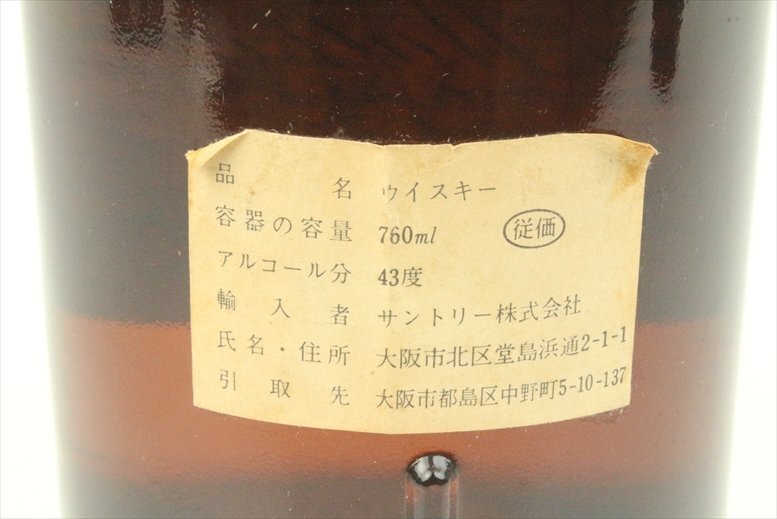 品名 ウイスキー
容器の容量 760ml 従価
アルコール分 43度
輸入者 サントリー株式会社
氏名・住所 大阪市北区堂島浜通2-1-1
引取先 大阪市都島区中野町5-10-137